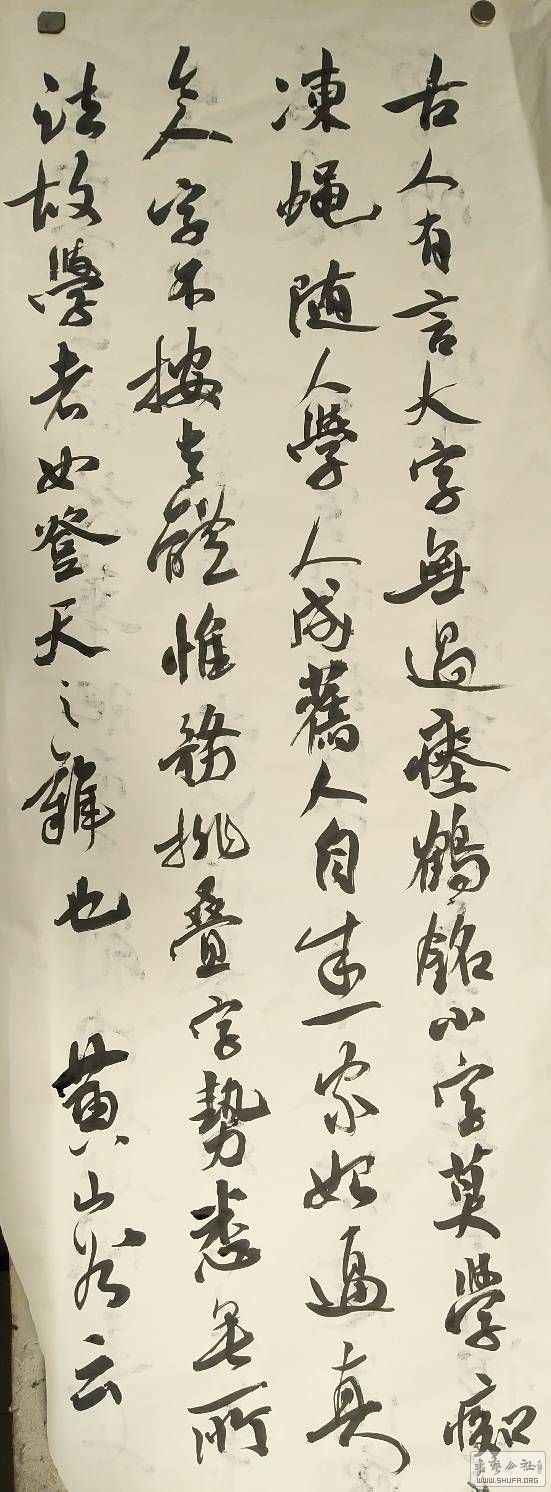 古人有言大字無過瘞鶴銘小字莫學痴
凍蝇随人學人成舊人自成一家始逼真
今人字不按古體惟務排疊字勢悉無所
法故學者如登天之難也 黄山谷云
书艺公社
WWW.SHUFA.ORG